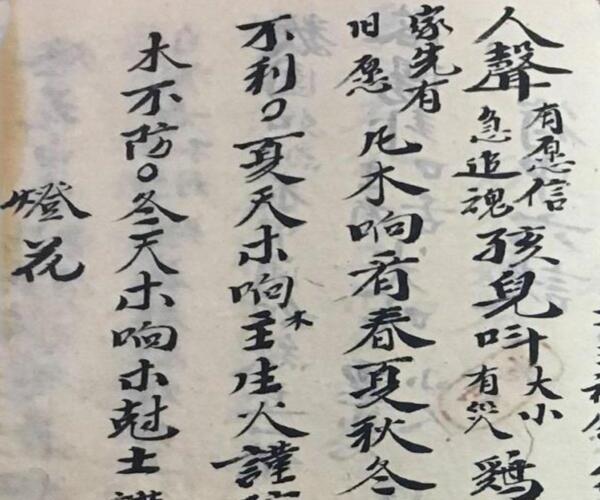 人聲有愿信急追魂孩兒呌大小有災鷄
家先有旧愿凡木响看春夏秋冬
不利。夏天木响木主生火謹
木不防。冬天木响木尅土
燈花